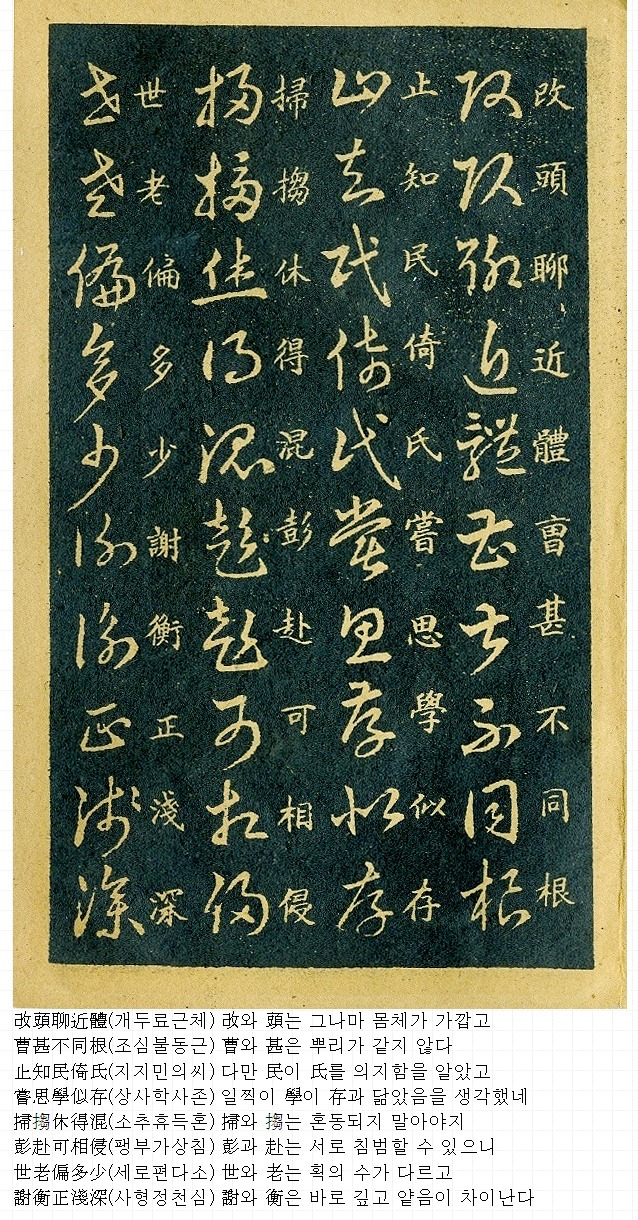 改頭聊近體曺甚不同根
改頭聊近體曺甚不同根
止知民倚氏嘗思學似存
止知民倚氏嘗思學似存
掃搊休得混彭赴可相侵
掃搊休得混彭赴可相侵
世老偏多少謝衡正淺深
世老偏多少謝衡正淺深
改頭聊近體(개두료근체) 改와 頭는 그나마 몸체가 가깝고
曹甚不同根(조심불동근) 曹와 甚은 뿌리가 같지 않다
止知民倚氏(지지민의씨) 다만 民이 氏를 의지함을 알았고
嘗思學似存(상사학사존) 일찍이 學이 存과 닮았음을 생각했네
掃搊休得混(소추휴득혼) 掃와 搊는 혼동되지 말아야지
彭赴可相侵(팽부가상침) 彭과 赴는 서로 침범할 수 있으니
世老偏多少(세로편다소) 世와 老는 획의 수가 다르고
謝衡正淺深(사형정천심) 謝와 衡은 바로 깊고 얕음이 차이난다